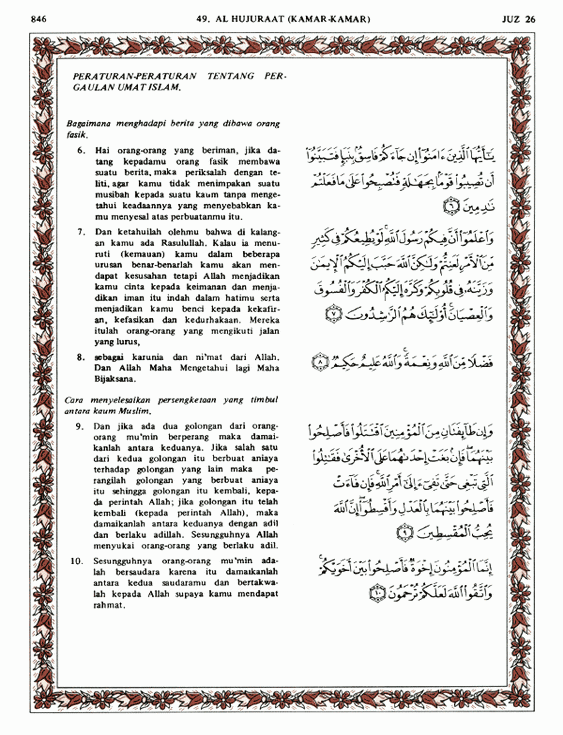 846
49. AL HUJURAAT (KAMAR-KAMAR)
JUZ 26
PERATURAN-PERATURAN TENTANG PER-
GAULAN UMAT ISLAM.
Bagaimana menghadapi berita yang dibawa orang
fasik.
6. Hai orang-orang yang beriman, jika da-
tang kepadamu orang fasik membawa
suatu berita, maka periksalah dengan te-
liti, agar kamu tidak menimpakan suatu
musibah kepada suatu kaum tanpa menge-
tahui keadaannya yang menyebabkan ka-
mu menyesal atas perbuatanmu itu.
يَٰٓأَيُّهَا ٱلَّذِينَ ءَامَنُوٓا۟ إِن جَآءَكُمْ فَاسِقٌۢ بِنَبَإٍ فَتَبَيَّنُوٓا۟
أَن تُصِيبُوا۟ قَوْمًۢا بِجَهَٰلَةٍ فَتُصْبِحُوا۟ عَلَىٰ مَا فَعَلْتُمْ
نَٰدِمِينَ ٦
7. Dan ketahuilah olehmu bahwa di kalang-
an kamu ada Rasulullah. Kalau ia menu-
ruti (kemauan) kamu dalam beberapa
urusan benar-benarlah kamu akan men-
dapat kesusahan tetapi Allah menjadikan
kamu cinta kepada keimanan dan menja-
dikan iman itu indah dalam hatimu serta
menjadikan kamu benci kepada kekafir-
an, kefasikan dan kedurhakaan. Mereka
itulah orang-orang yang mengikuti jalan
yang lurus,
وَٱعْلَمُوٓا۟ أَنَّ فِيكُمْ رَسُولَ ٱللَّهِ ۚ لَوْ يُطِيعُكُمْ فِى كَثِيرٍ
مِّنَ ٱلْأَمْرِ لَعَنِتُّمْ وَلَٰكِنَّ ٱللَّهَ حَبَّبَ إِلَيْكُمُ ٱلْإِيمَٰنَ
وَزَيَّنَهُۥ فِى قُلُوبِكُمْ وَكَرَّهَ إِلَيْكُمُ ٱلْكُفْرَ وَٱلْفُسُوقَ
وَٱلْعِصْيَانَ ۚ أُو۟لَٰٓئِكَ هُمُ ٱلرَّٰشِدُونَ ٧
8. sebagai karunia dan ni'mat dari Allah.
Dan Allah Maha Mengetahui lagi Maha
Bijaksana.
فَضْلًا مِّنَ ٱللَّهِ وَنِعْمَةً ۚ وَٱللَّهُ عَلِيمٌ حَكِيمٌ ٨
Cara menyelesaikan persengketaan yang timbul
antara kaum Muslim.
9. Dan jika ada dua golongan dari orang-
orang mu'min berperang maka damai-
kanlah antara keduanya. Jika salah satu
dari kedua golongan itu berbuat aniaya
terhadap golongan yang lain maka pe-
rangilah golongan yang berbuat aniaya
itu sehingga golongan itu kembali, kepa-
da perintah Allah; jika golongan itu telah
kembali (kepada perintah Allah), maka
damaikanlah antara keduanya dengan adil
dan berlaku adillah. Sesungguhnya Allah
menyukai orang-orang yang berlaku adil.
وَإِن طَآئِفَتَانِ مِنَ ٱلْمُؤْمِنِينَ ٱقْتَتَلُوا۟ فَأَصْلِحُوا۟
بَيْنَهُمَا ۖ فَإِنۢ بَغَتْ إِحْدَىٰهُمَا عَلَى ٱلْأُخْرَىٰ فَقَٰتِلُوا۟
ٱلَّتِى تَبْغِى حَتَّىٰ تَفِىٓءَ إِلَىٰٓ أَمْرِ ٱللَّهِ ۚ فَإِن فَآءَتْ
فَأَصْلِحُوا۟ بَيْنَهُمَا بِٱلْعَدْلِ وَأَقْسِطُوٓا۟ ۖ إِنَّ ٱللَّهَ
يُحِبُّ ٱلْمُقْسِطِينَ ٩
10. Sesungguhnya orang-orang mu'min ada-
lah bersaudara karena itu damaikanlah
antara kedua saudaramu dan bertakwa-
lah kepada Allah supaya kamu mendapat
rahmat.
إِنَّمَا ٱلْمُؤْمِنُونَ إِخْوَةٌ فَأَصْلِحُوا۟ بَيْنَ أَخَوَيْكُمْ ۚ
وَٱتَّقُوا۟ ٱللَّهَ لَعَلَّكُمْ تُرْحَمُونَ ١٠